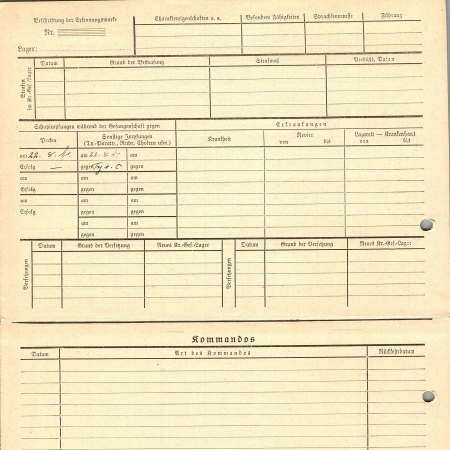 Beschriftung der Erkennungsmarke
Nr.
Lager:
Charaktereigenschaften u. a.
Besondere Fähigkeiten
Sprachkenntnisse
Führung
Strafen im Kr.-Gef.-Lager
Datum
Grund der Bestrafung
Strafmaß
Verbüßt, Datum
Schutzimpfungen während der Gefangenschaft gegen
Erkrankungen
Pocken
Sonstige Impfungen
(Ty.-Paraty., Ruhr, Cholera usw.)
Krankheit
Revier
von bis
Lazarett — Krankenhaus
von bis
am 22. 8. 41 am 22. 8. 41 am
Erfolg — gegen gegen
am am am
Erfolg gegen gegen
am am am
Erfolg gegen gegen
am am
gegen gegen
Versetzungen
Datum
Grund der Versetzung
Neues Kr.-Gef.-Lager
Versetzungen
Datum
Grund der Versetzung
Neues Kr.-Gef.-Lager
Kommandos
Datum
Art des Kommandos
Rückkehrdatum